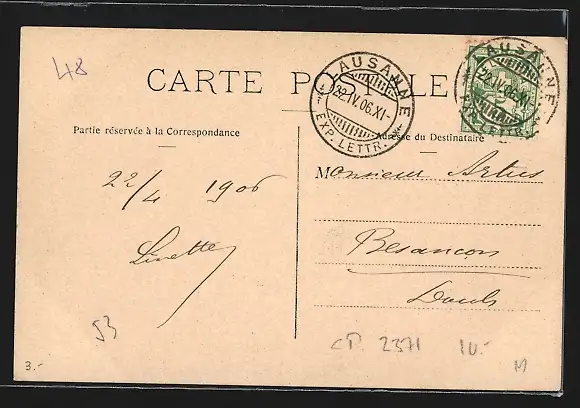 48
CARTE POSTALE
LAUSANNE
22.IV.06.XI-
EXP. LETTR.
LAUSANNE
22.IV.06.XI-
EXP. LETTR.
Partie réservée à la Correspondance
Adresse du Destinataire
22/4 1906
Linette
Monsieur Artus
Besançon
Doubs
53
CP. 2371 10.-
3.-
M